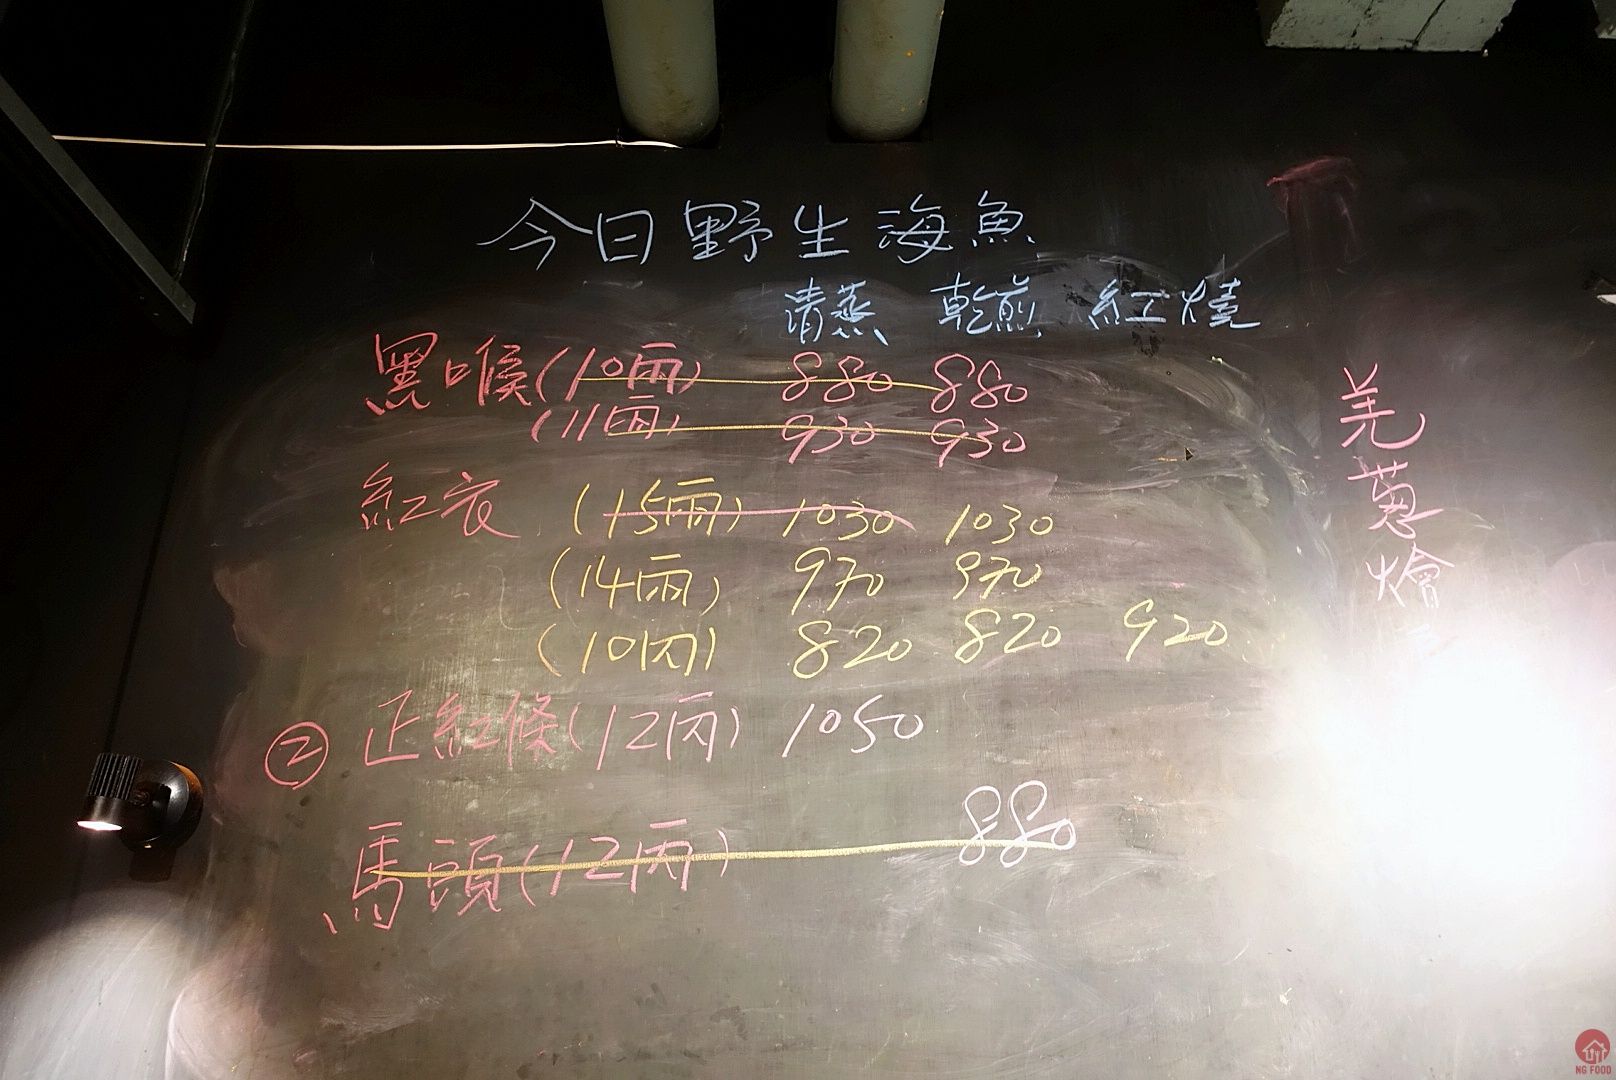 今日野生海魚
清蒸 乾煎 紅燒
黑喉(10兩) 880 880
(11兩) 930 930
紅衣 (15兩) 1030 1030
(14兩) 970 970
(10兩) 820 820 920
② 正紅條(12兩) 1050
馬頭(12兩) 880
羌蔥燴
NG FOOD